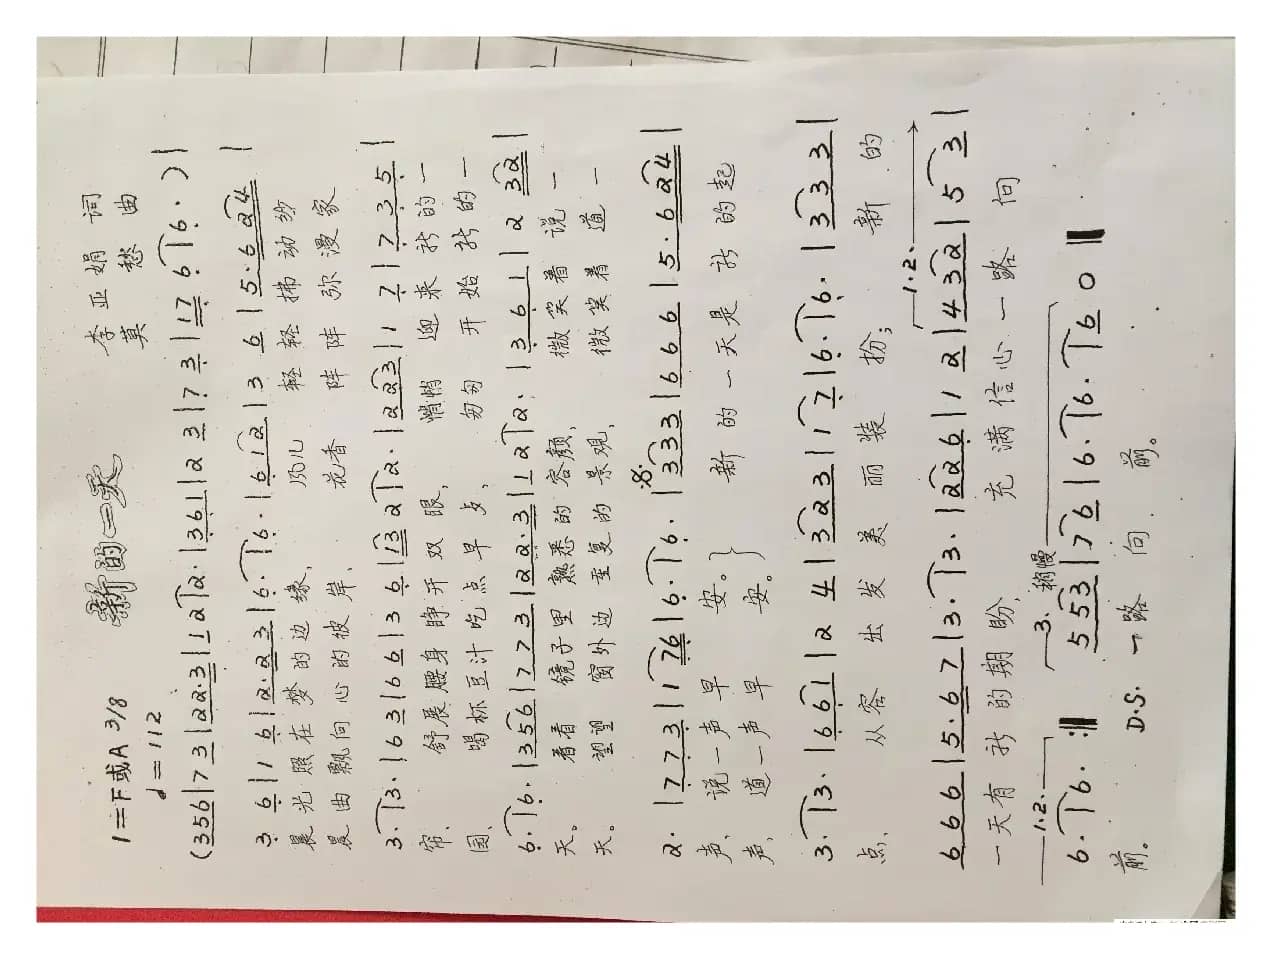 新的一天
李亚娟 词
莫愁 曲
1=F或A 3/8
♩=112
(356|73|22·3|12|2·|361|23|73|176|6·)|
3 6|1 6|2·23|6·|6·|612|3 6|5·624|
晨光照在梦的边缘, 风儿 轻轻拂动纱
晨曲飘向心的彼岸, 花香 阵阵弥漫家
3·|3·|63|66|36|132|2·|223|1 7|735|
帘. 舒展腰身睁开双眼, 悄悄 迎来新的一
园. 喝杯豆汁吃点早点, 匆匆 开始新的一
6·|6·|356|773|22·3|12|2·|361|2 32|
天。 看看 镜子里熟悉的容颜, 微笑着说一
天。 望望 窗外边重复的景观, 微笑着道一
2·|773|176|6·|6·|333|666|5·624|
声, 说一声早 安。} 新的一天是 新的起
声, 道一声早 安。
3·|3·|661|24|323|17|6·|6·|333|
点, 从容 出发美丽装扮; 新的
1.2.
666|5·67|3·|3·|226|12|432|53|
一天有新的期盼, 充满信心一路 向
1.2. 3. 稍慢
6·|6·:‖ 553|76|6·|6·|60‖
前。 D.S. 一路 向 前。